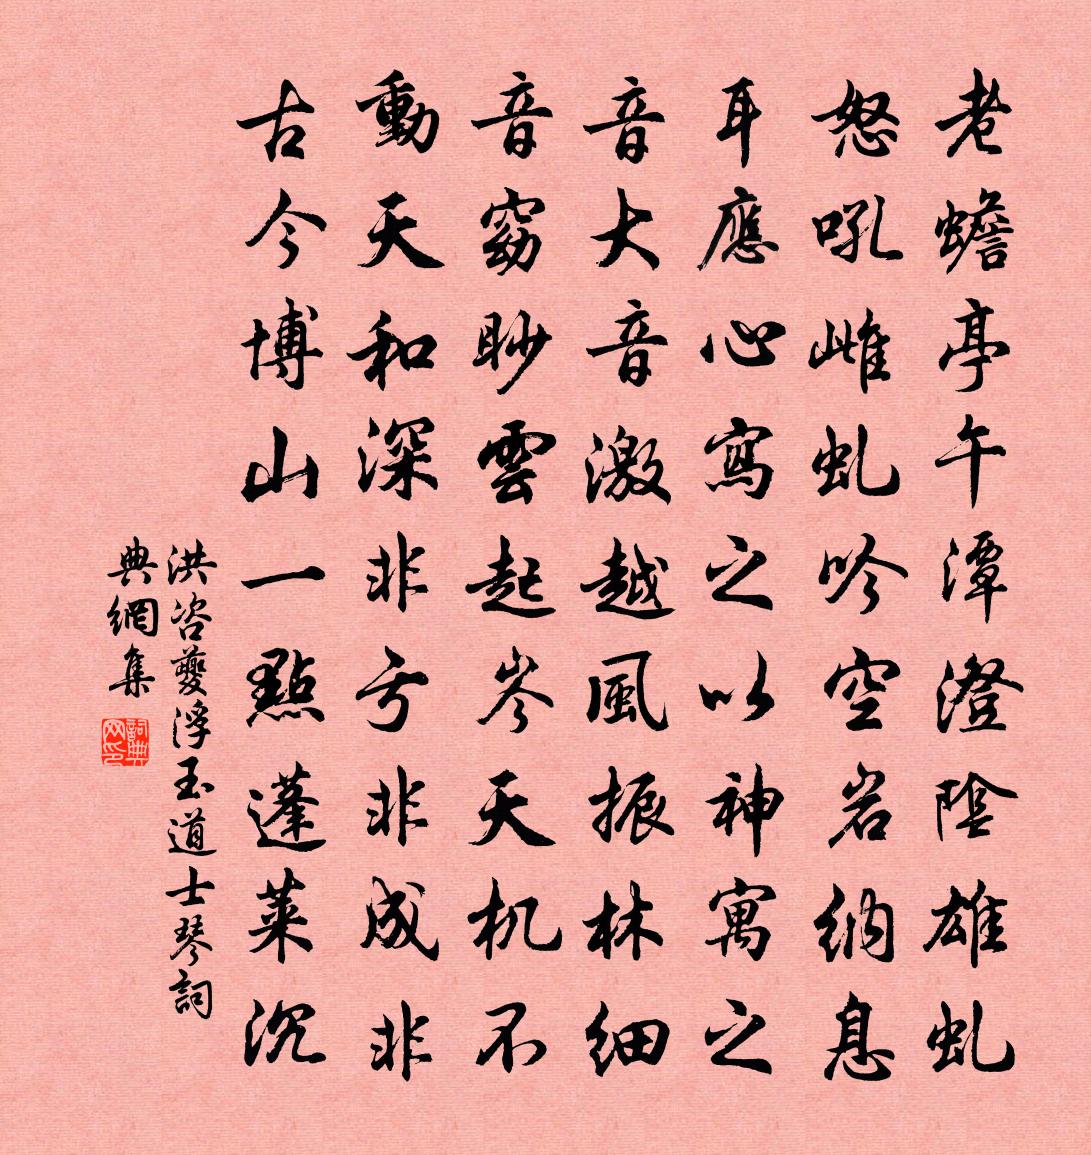 老蟾亭午潭澄陰雄虬
怒吼雌虬吟空岩納息
耳應心寫之以神寓之
音大音激越風振林細
音窈眇雲起岑天机不
動天和深非亏非成非
古今博山一點蓬萊沉
洪咨夔浮玉道士琴詞
典網集
詞典网印